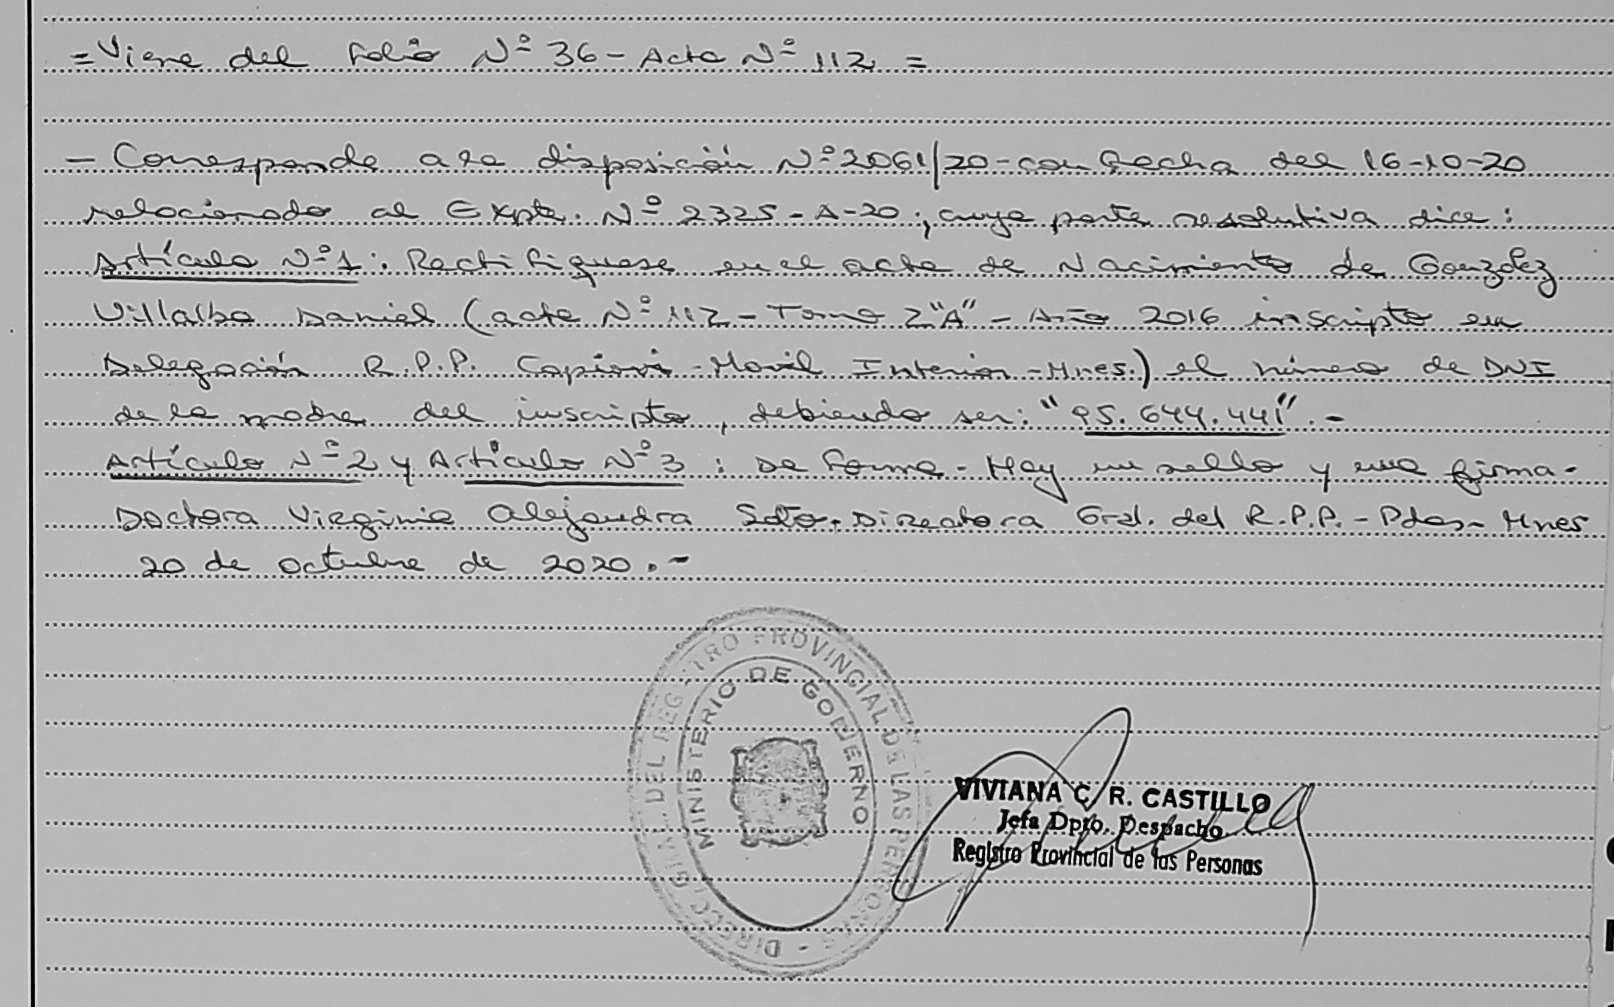 = Viene del Folio Nº 36 - Acta Nº 112 =
- Corresponde a la disposición Nº 2061/20 - con fecha del 16-10-20
relacionado al Expte. Nº 2325 - A-20 ; cuya parte resolutiva dice :
Artículo Nº 1 : Rectifiquese en el acta de Nacimiento de González
Villalba Daniel (acta Nº 112 - Tomo 2 "A" - Año 2016 inscripto en
Delegación R.P.P. Capiovi - Movil Interior - Mnes.) el número de DNI
de la madre del inscripto, debiendo ser : "95.644.441" . -
Artículo Nº 2 y Artículo Nº 3 : De forma - Hay un sello y una firma -
Doctora Virginia Alejandra Soto. Directora Gral. del R.P.P. - Pdas - Mnes
20 de octubre de 2020 . -
DIRECC. GRAL. DEL REGISTRO PROVINCIAL DE LAS PERSONAS -
MINISTERIO DE GOBIERNO
VIVIANA C. R. CASTILLO
Jefa Dpto. Despacho
Registro Provincial de las Personas